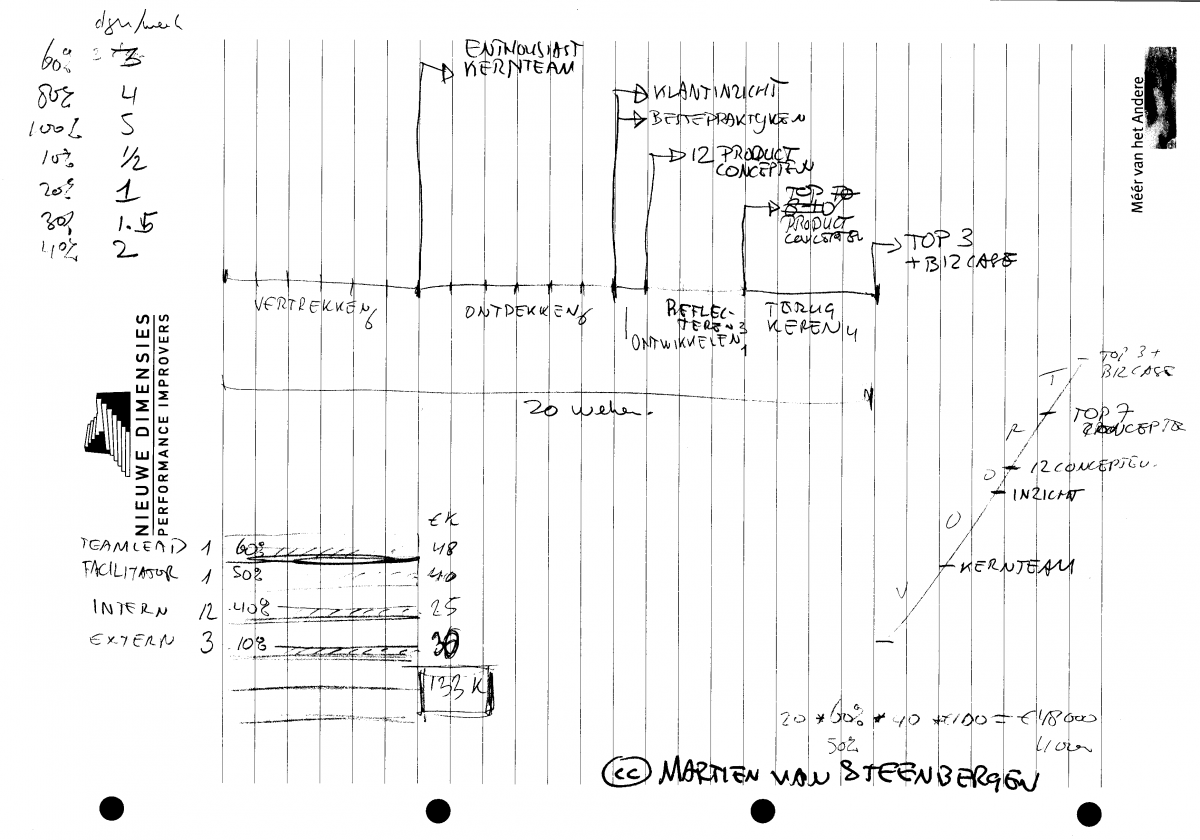 dgn/week
60% 3
80% 4
100% 5
10% 1/2
20% 1
30% 1.5
40% 2
ENTHOUSIAST
KERNTEAM
KLANTINZICHT
BESTEPRAKTIJKEN
12 PRODUCT
CONCEPTEN
TOP 7
8-10
PRODUCT
CONCEPTEN
TOP 3
+ BIZCASE
VERTREKKEN 6
ONTDEKKEN 6
REFLEC-
TEREN 3
ONTWIKKELEN 1
TERUG
KEREN 4
20 weken.
Méér van het Andere
NIEUWE DIMENSIES
PERFORMANCE IMPROVERS
€K
TEAMLEAD 1 60% 48
FACILITATOR 1 50% 40
INTERN 12 40% 25
EXTERN 3 10%
133 K
T TOP 3 +
BIZCASE
R TOP 7
CONCEPTEN
O 12 CONCEPTEN.
INZICHT
O
KERNTEAM
V
20 * 60% * 40 * €100 = €48000
50%
(cc) MARTIEN VAN STEENBERGEN